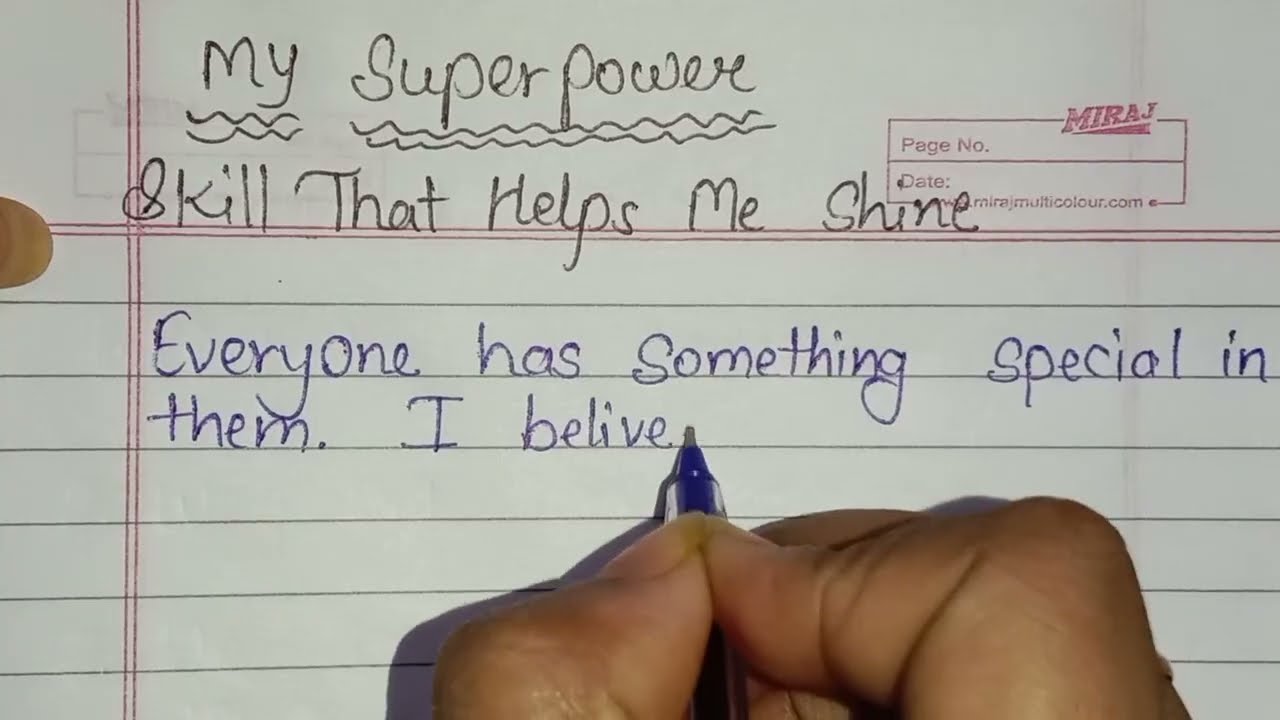 My Superpower
MIRAJ
Page No.
Skill That Helps Me Shine
Date:
.mirajmulticolour.com
Everyone has something special in
them. I belive